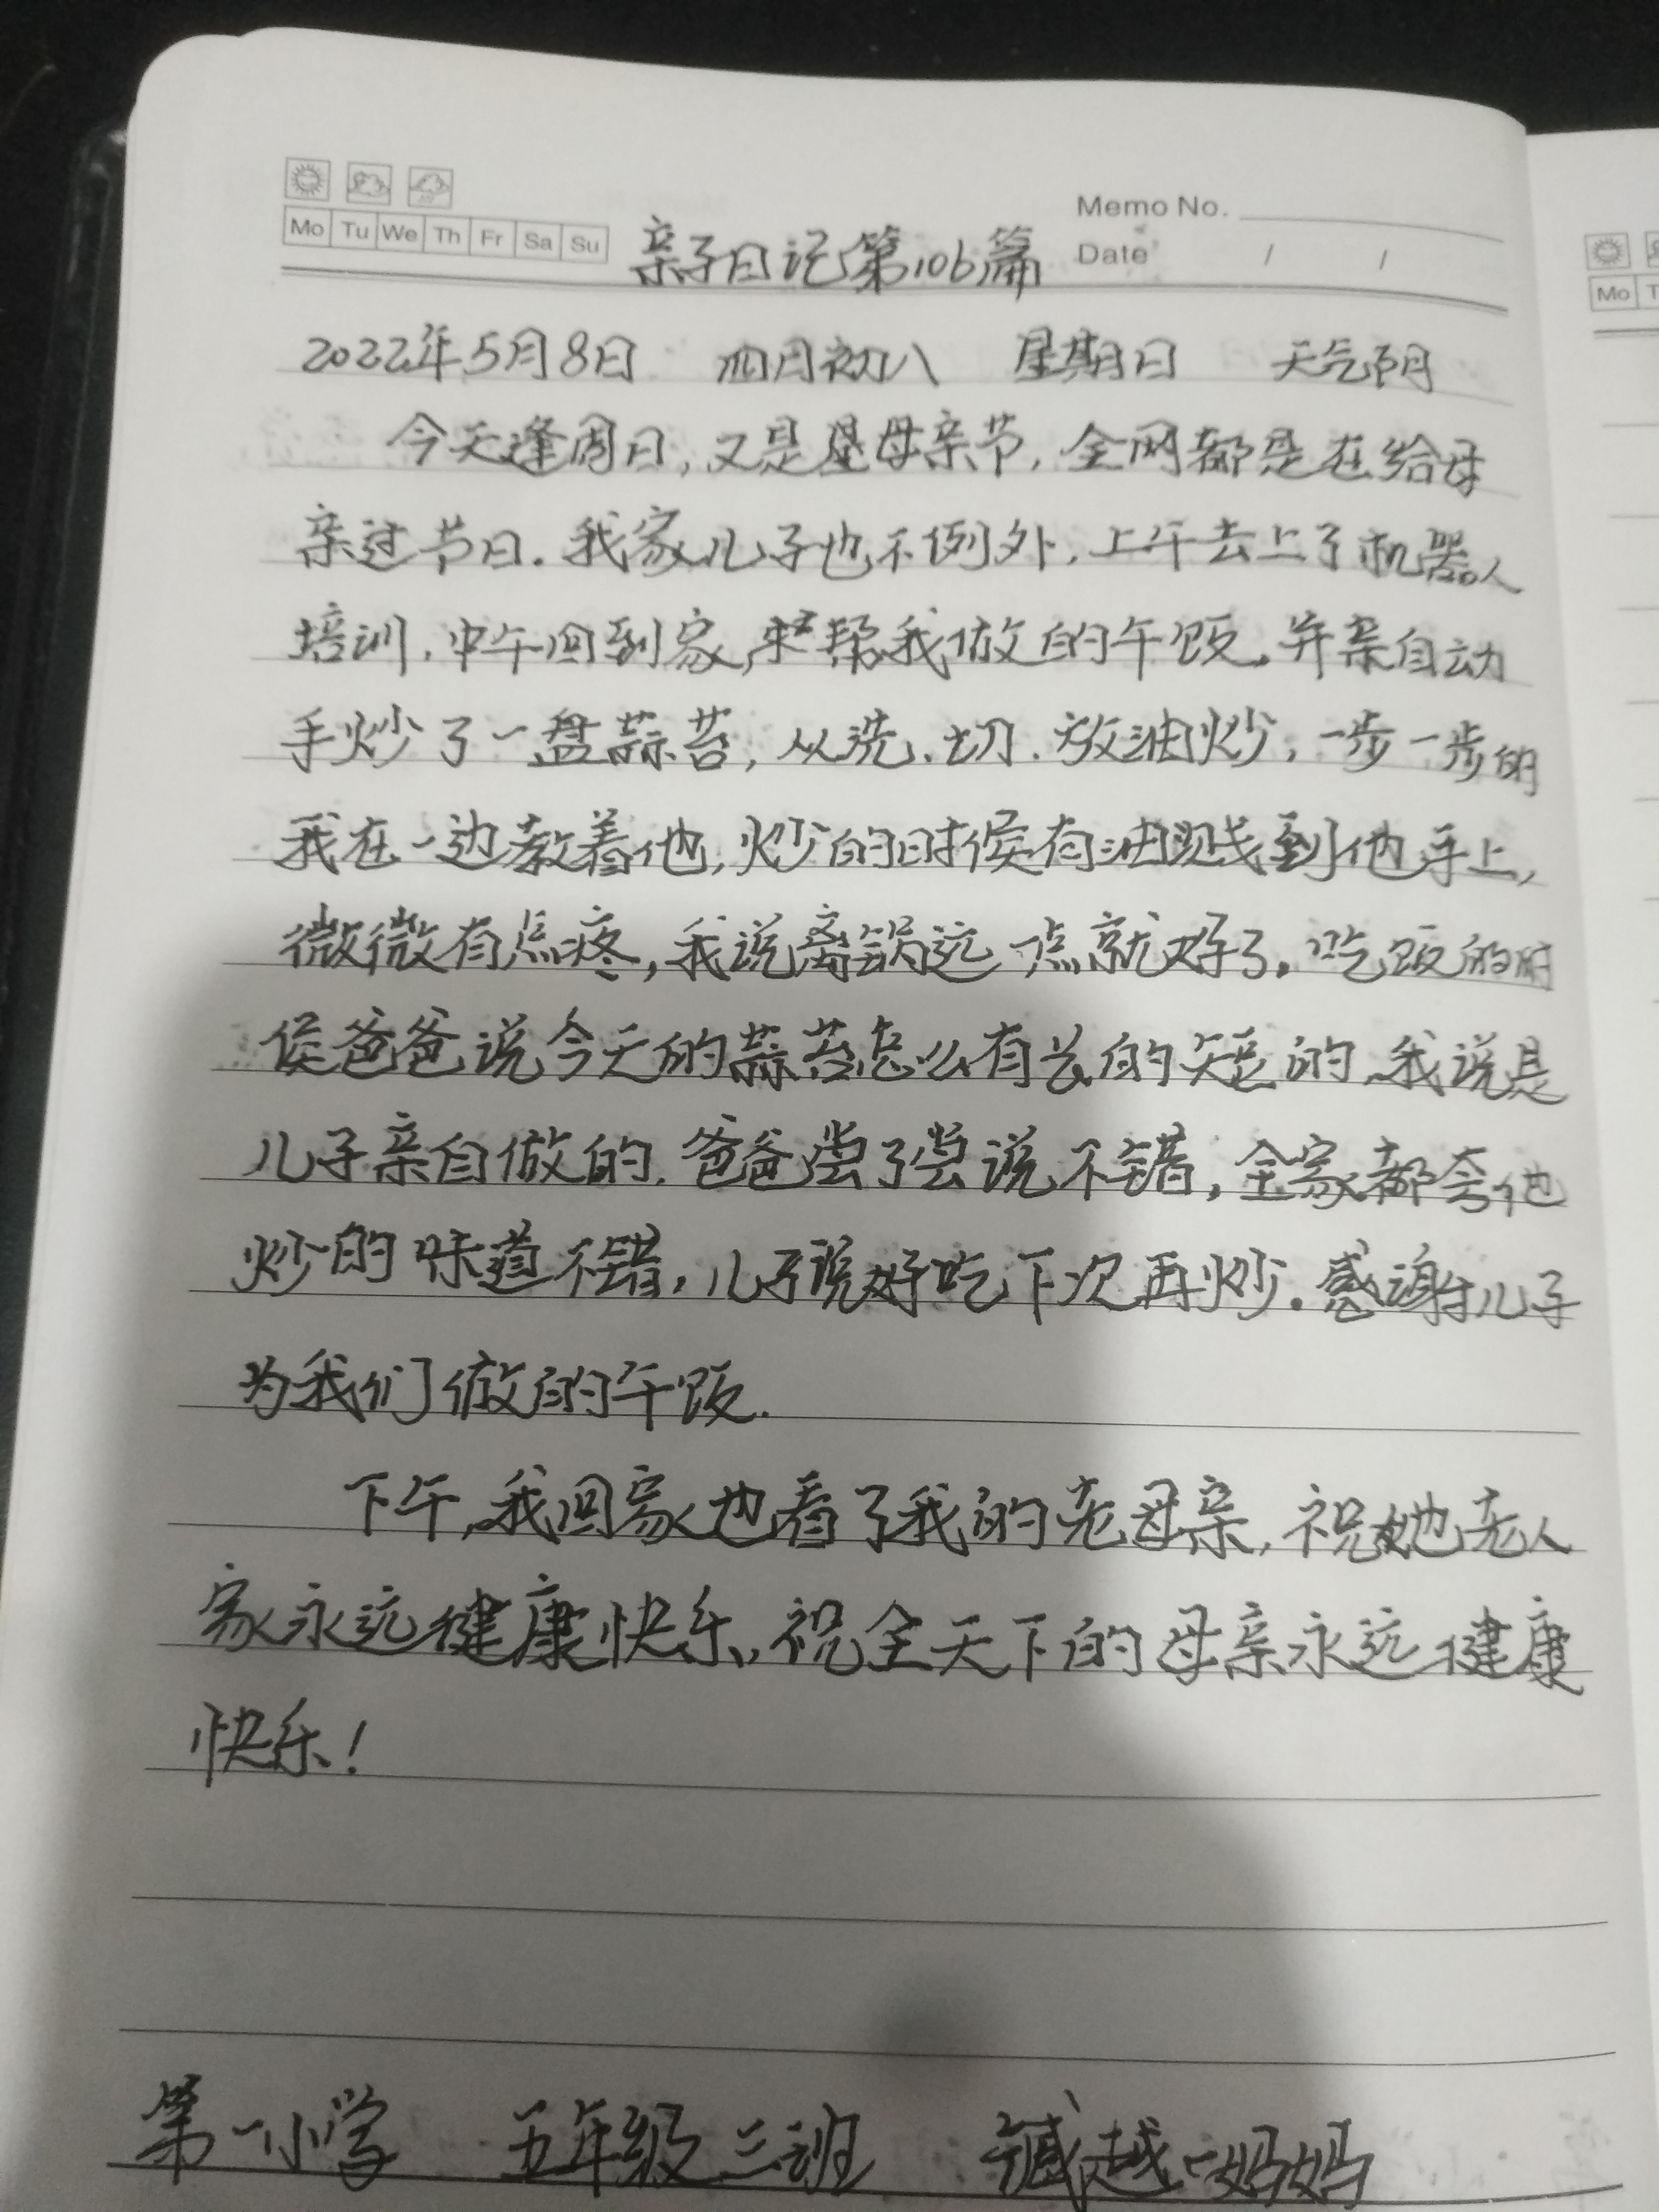 Memo No.
Mo Tu We Th Fr Sa Su
亲子日记第106篇
Date / /
2022年5月8日 四月初八 星期日 天气阴
今天逢周日,又是是母亲节,全网都是在给母
亲过节日.我家儿子也不例外,上午去上了机器人
培训,中午回到家,来帮我做的午饭。并亲自动
手炒了一盘蒜苔,从洗、切、放油炒,一步一步的
我在一边教着他,炒的时侯有油溅到他手上,
微微有点疼,我说离锅远一点就好了。吃饭的时
侯爸爸说今天的蒜苔怎么有长的短的,我说是
儿子亲自做的.爸爸尝了尝说不错,全家都夸他
炒的味道不错,儿子说好吃下次再炒.感谢儿子
为我们做的午饭.
下午,我回家也看了我的老母亲,祝她老人
家永远健康快乐,祝全天下的母亲永远健康
快乐!
第一小学 五年级三班 越妈妈
Mo